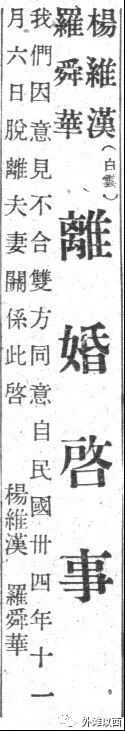 楊維漢(白雲)
羅舜華
離婚啓事
我們因意見不合雙方同意自民國卅四年十一
月六日脫離夫妻關係此啓
楊維漢 羅舜華
外滩以西